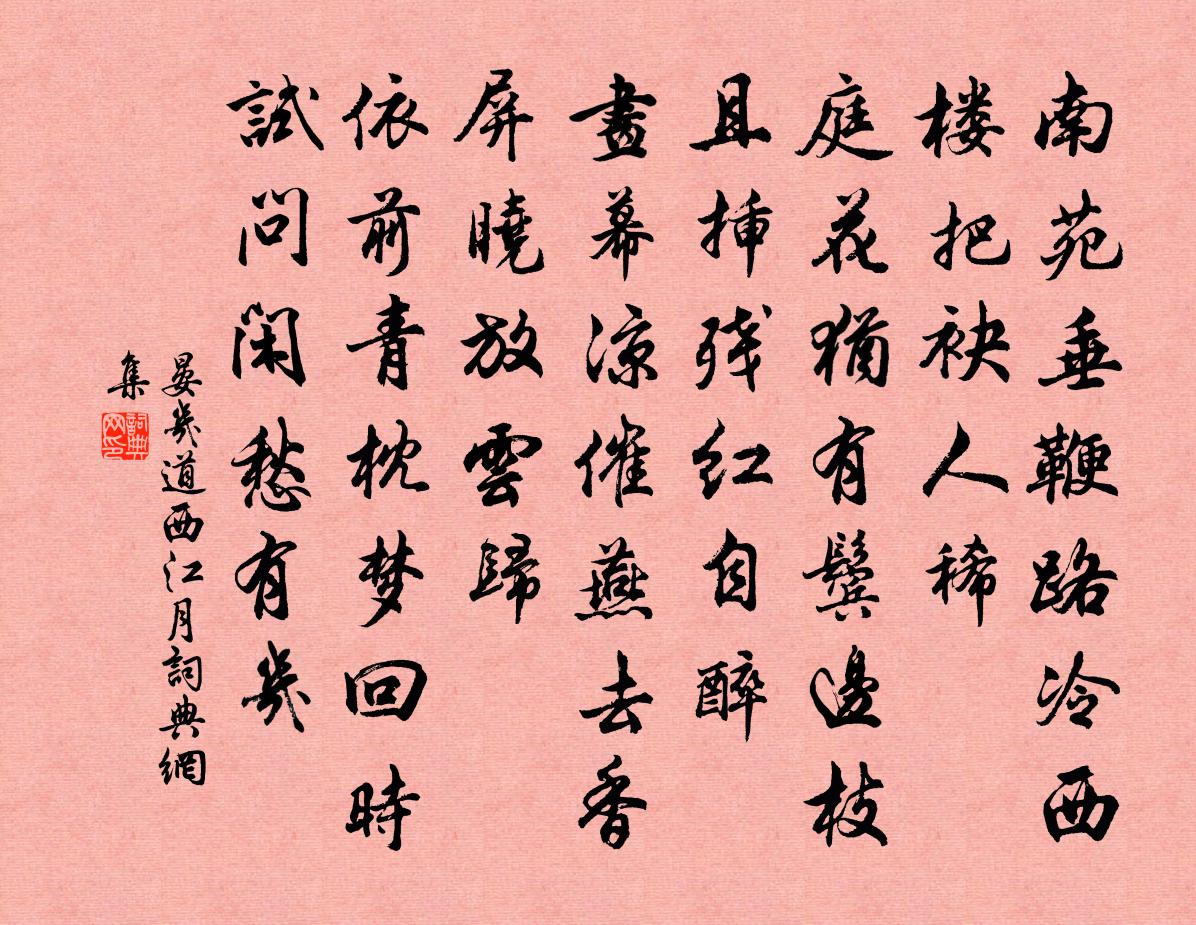 南苑垂鞭路冷西
楼把袂人稀
庭花猶有鬓邊枝
且挿残红自醉
畫幕凉催燕去香
屏曉放雲歸
依前青枕梦回時
試問閑愁有幾
晏幾道西江月詞典網
集
詞典
网印